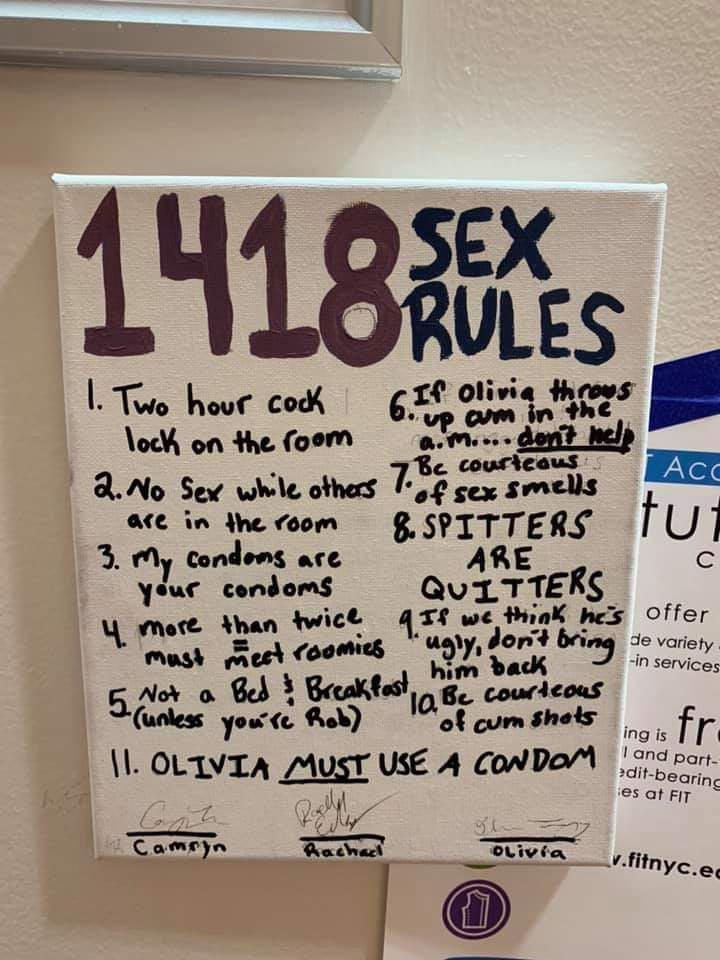 1418 SEX
RULES
1. Two hour cock
lock on the room
2. No Sex while others
are in the room
3. My condoms are
your condoms
4. more than twice
must meet roomies
5. Not a Bed & Breakfast
(unless you're Rob)
6. If Olivia throws
up cum in the
a.m.... don't help
7. Be courteous
of sex smells
8. SPITTERS
ARE
QUITTERS
9. If we think he's
ugly, don't bring
him back
10. Be courteous
of cum shots
11. OLIVIA MUST USE A CONDOM
Camryn
Rachael
Olivia
offer
de variety
-in services
ing is fr
l and part-
edit-bearing
es at FIT
.fitnyc.e